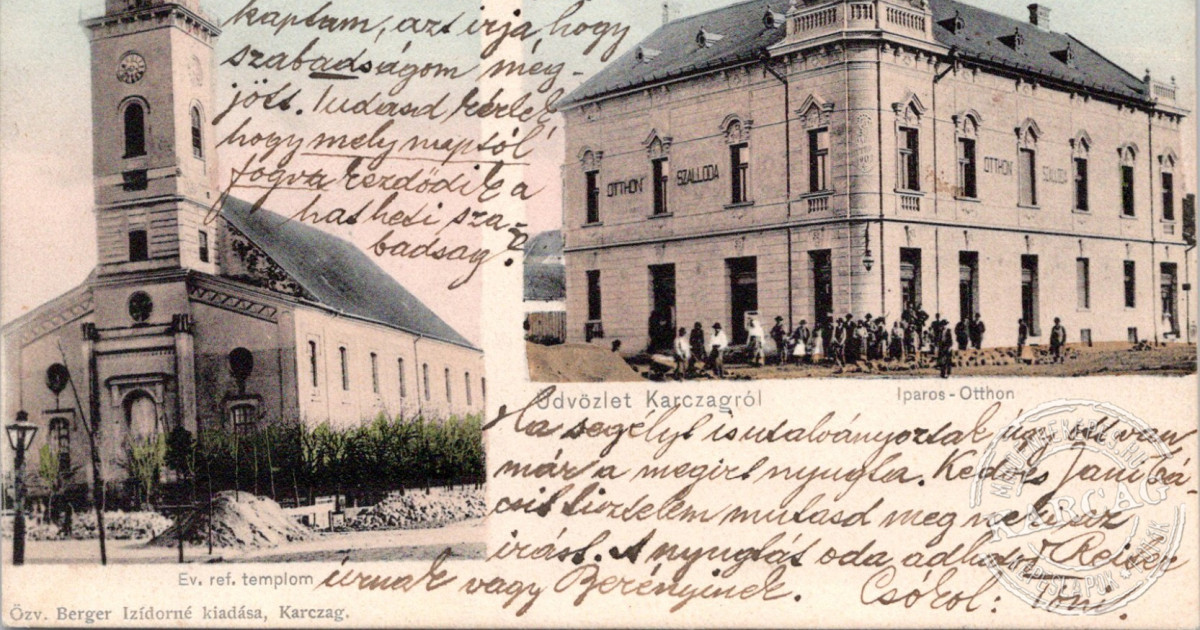 kaptam, azt írja, hogy
szabadságom meg-
jött. Tudasd kérlek
hogy mely naptól
fogva kezdődik a
hatheti sza-
badság?
OTTHON SZALLODA
OTTHON SZALLODA
Üdvözlet Karczagról
Iparos-Otthon
Ha segélyt is utalványoztak úgy ott van
már a megirt nyugta. Kedves Jani bá-
csit tisztelem mutasd meg neki az
irást. A nyugtát oda adhatod
úrnak vagy Berényinek. Csókol: Toni.
Ev. ref. templom
Özv. Berger Izídorné kiadása, Karczag.
KARCAG
KÉPESLAPOK